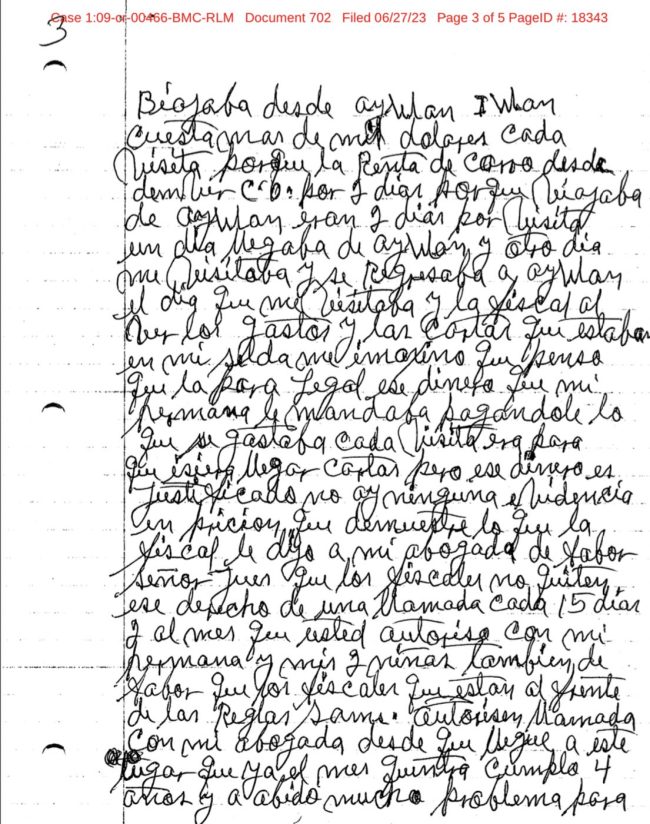 Case 1:09-cr-00466-BMC-RLM Document 702 Filed 06/27/23 Page 3 of 5 PageID #: 18343
3
Biajaba desde ayWan IWan
cuesta mas de mil dolares cada
Visita porque la Renta de carro desde
demVer C.O. por 2 dias porque Viajaba
de ayWan eran 2 dias por Visita
un dia llegaba de ayWan y otro dia
me Visitaba y se Regresaba a ayWan
el dia que me Visitaba y la fiscal al
Ver los gastos y las cartas que estaban
en mi selda me imagino que penso
que la para Legal ese dinero que mi
hermana le mandaba pagandole lo
que se gastaba cada Visita era para
que isiera llegar cartas pero ese dinero es
justificado no ay ninguna eVidencia
en pricion que demuestre lo que la
fiscal le dijo a mi abogada de fabor
señor Jues que los fiscales no quiten
ese derecho de una llamada cada 15 dias
2 al mes que usted autoriso con mi
hermana y mis 2 niñas tambien de
fabor que los fiscales que estan al frente
de las Reglas Sams. autorisen llamada
con mi abogada desde que llegue a este
lugar que ya el mes cumplo 4
años y a abido mucho problema para